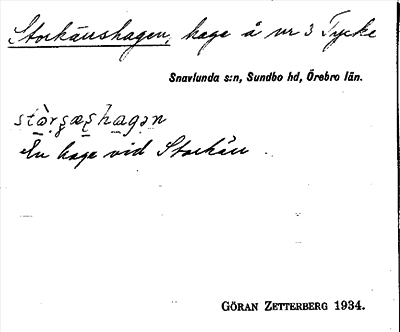 Storkäushagen, hage å nr 3 Tycke
Snavlunda s:n, Sundbo hd, Örebro län.
En hage vid Storkäu.
GÖRAN ZETTERBERG 1934.